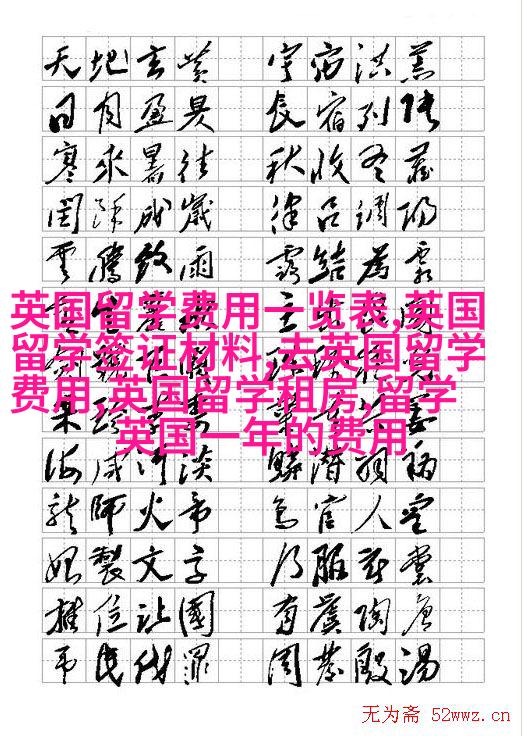 天地玄黄 宇宙洪荒
日月盈昃 辰宿列張
寒來暑往 秋收冬藏
閏餘成歲 律吕調陽
雲騰致雨 露結為霜
英国留学费用一览表,英国
留学签证材料,去英国留学
费用,英国留学租房,留学
英国一年的费用
海鹹河淡 鱗潛羽翔
龍師火帝 鳥官人皇
始製文字 乃服衣裳
推位讓國 有虞陶唐
弔民伐罪 周發殷湯
无为斋 52wwz.cn